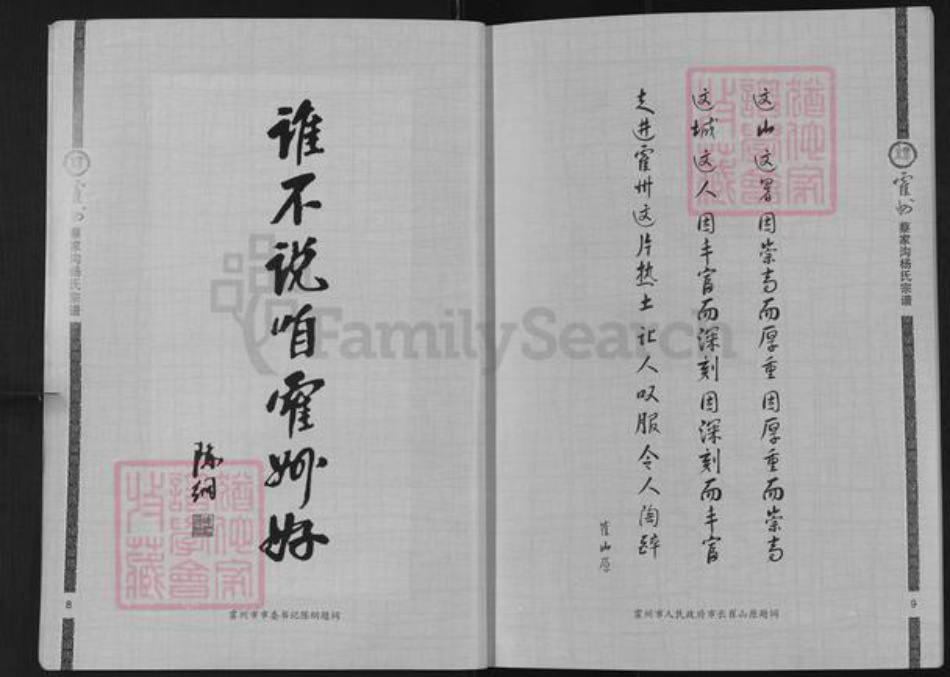 霍州 蔡家沟杨氏宗谱
谁不说咱霍州好
陈纲
霍州市市委书记陈纲题词
8
这山这署因崇高而厚重因厚重而崇高
这城这人因丰富而深刻因深刻而丰富
走进霍州这片热土让人叹服令人陶醉
崔山原
霍州市人民政府市长崔山原题词
9
霍州 蔡家沟杨氏宗谱
犹他家
谱学会
收藏
犹他家
谱学会
收藏
FamilySearch